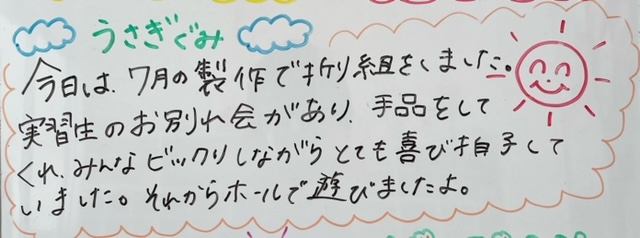 うさぎぐみ
今日は、7月の製作で折り組をしました。
実習生のお別れ会があり、手品をして
くれ、みんなビックリしながらとても喜び拍子して
いました。それからホールで遊びましたよ。